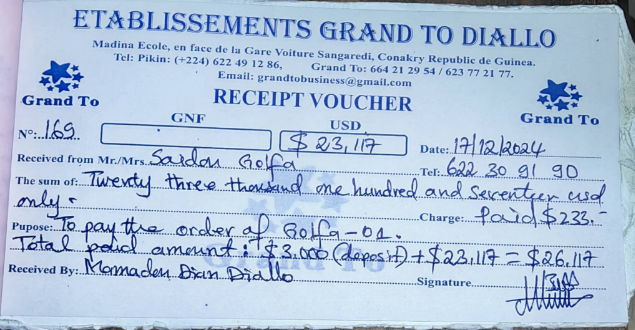 ETABLISSEMENTS GRAND TO DIALLO
Madina Ecole, en face de la Gare Voiture Sangaredi, Conakry Republic de Guinea.
Tel: Pikin: (+224) 622 49 12 86, Grand To: 664 21 29 54 / 623 77 21 77.
Email: grandtobusiness@gmail.com
Grand To
RECEIPT VOUCHER
Grand To
GNF USD
N°: 169 $ 23,117 Date: 17/12/2024
Received from Mr./Mrs. Saidou Golfa Tel: 622 30 91 90
The sum of: Twenty three thousand one hundred and seventeen usd
only. Charge: Paid $233.-
Pupose: To pay the order of Golfa-01.
Total paid amount: $3,000 (deposit) + $23,117 = $26,117
Grand To
Received By: Mamadou Dian Diallo Signature